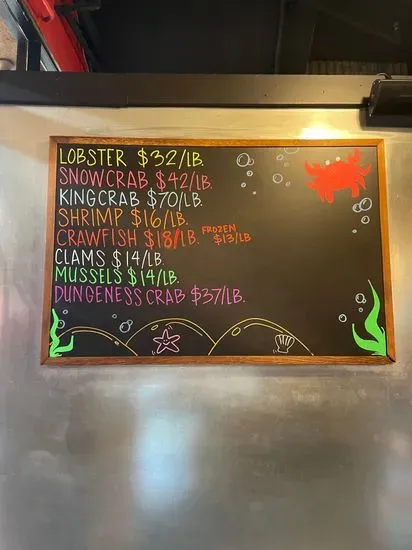 LOBSTER $32/LB.
SNOWCRAB $42/LB.
KINGCRAB $70/LB.
SHRIMP $16/LB.
CRAWFISH $18/LB. FROZEN $13/LB
CLAMS $14/LB.
MUSSELS $14/LB.
DUNGENESS CRAB $37/LB.